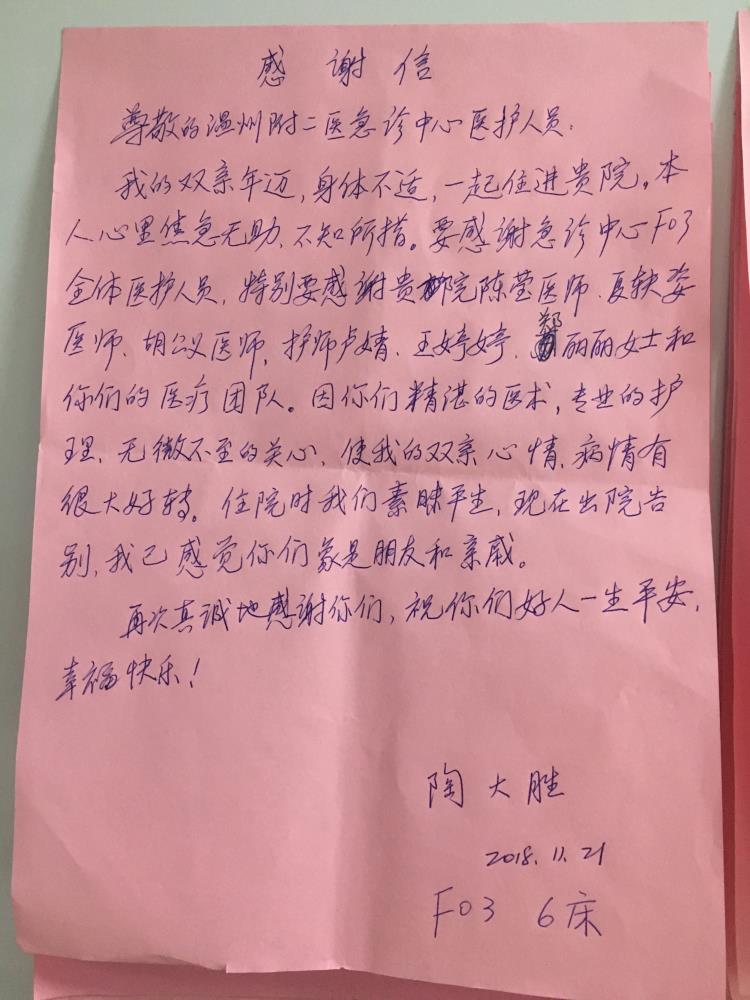 感谢信
尊敬的温州附二医急诊中心医护人员:
我的双亲年迈,身体不适,一起住进贵院。本
人心里焦急无助、不知所措。要感谢急诊中心F03
全体医护人员,特别要感谢贵院陈莹医师、夏轶姿
医师、胡公议医师,护师卢婧、王婷婷、郑丽丽女士和
你们的医疗团队。因你们精湛的医术,专业的护
理、无微不至的关心,使我的双亲心情、病情有
很大好转。住院时我们素昧平生,现在出院告
别,我已感觉你们象是朋友和亲戚。
再次真诚地感谢你们,祝你们好人一生平安,
幸福快乐!
陶大胜
2018.11.21
F03 6床